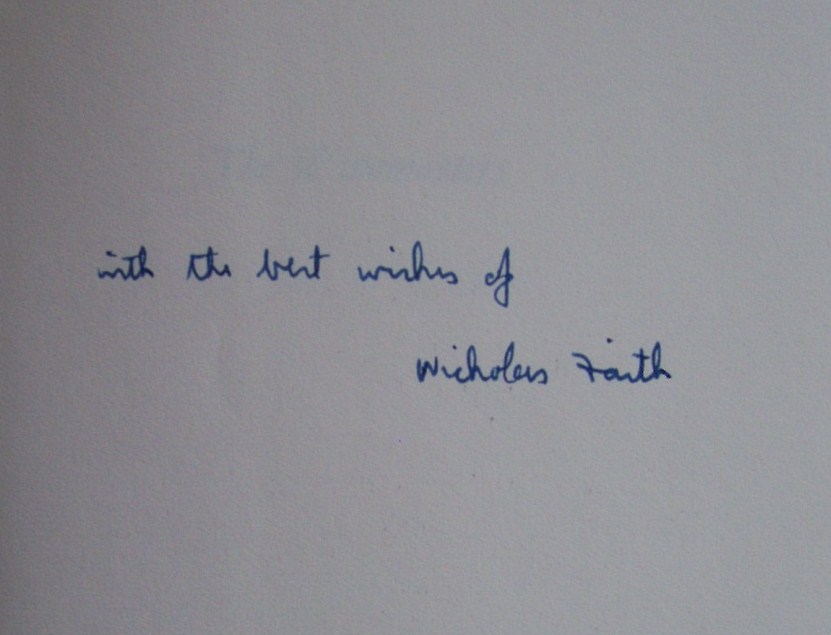 with the best wishes of
Nicholas Faith